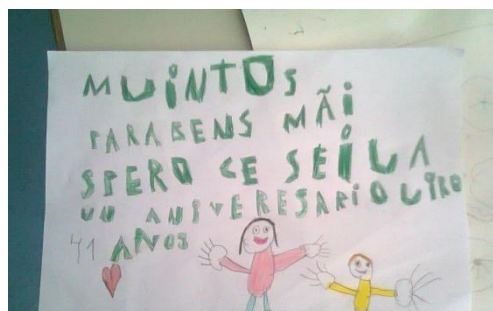 MUiNTOS
PARABENS MÃi
SPERO CE SEiLA
UN ANiVERESARiO LiRO
41 ANOS